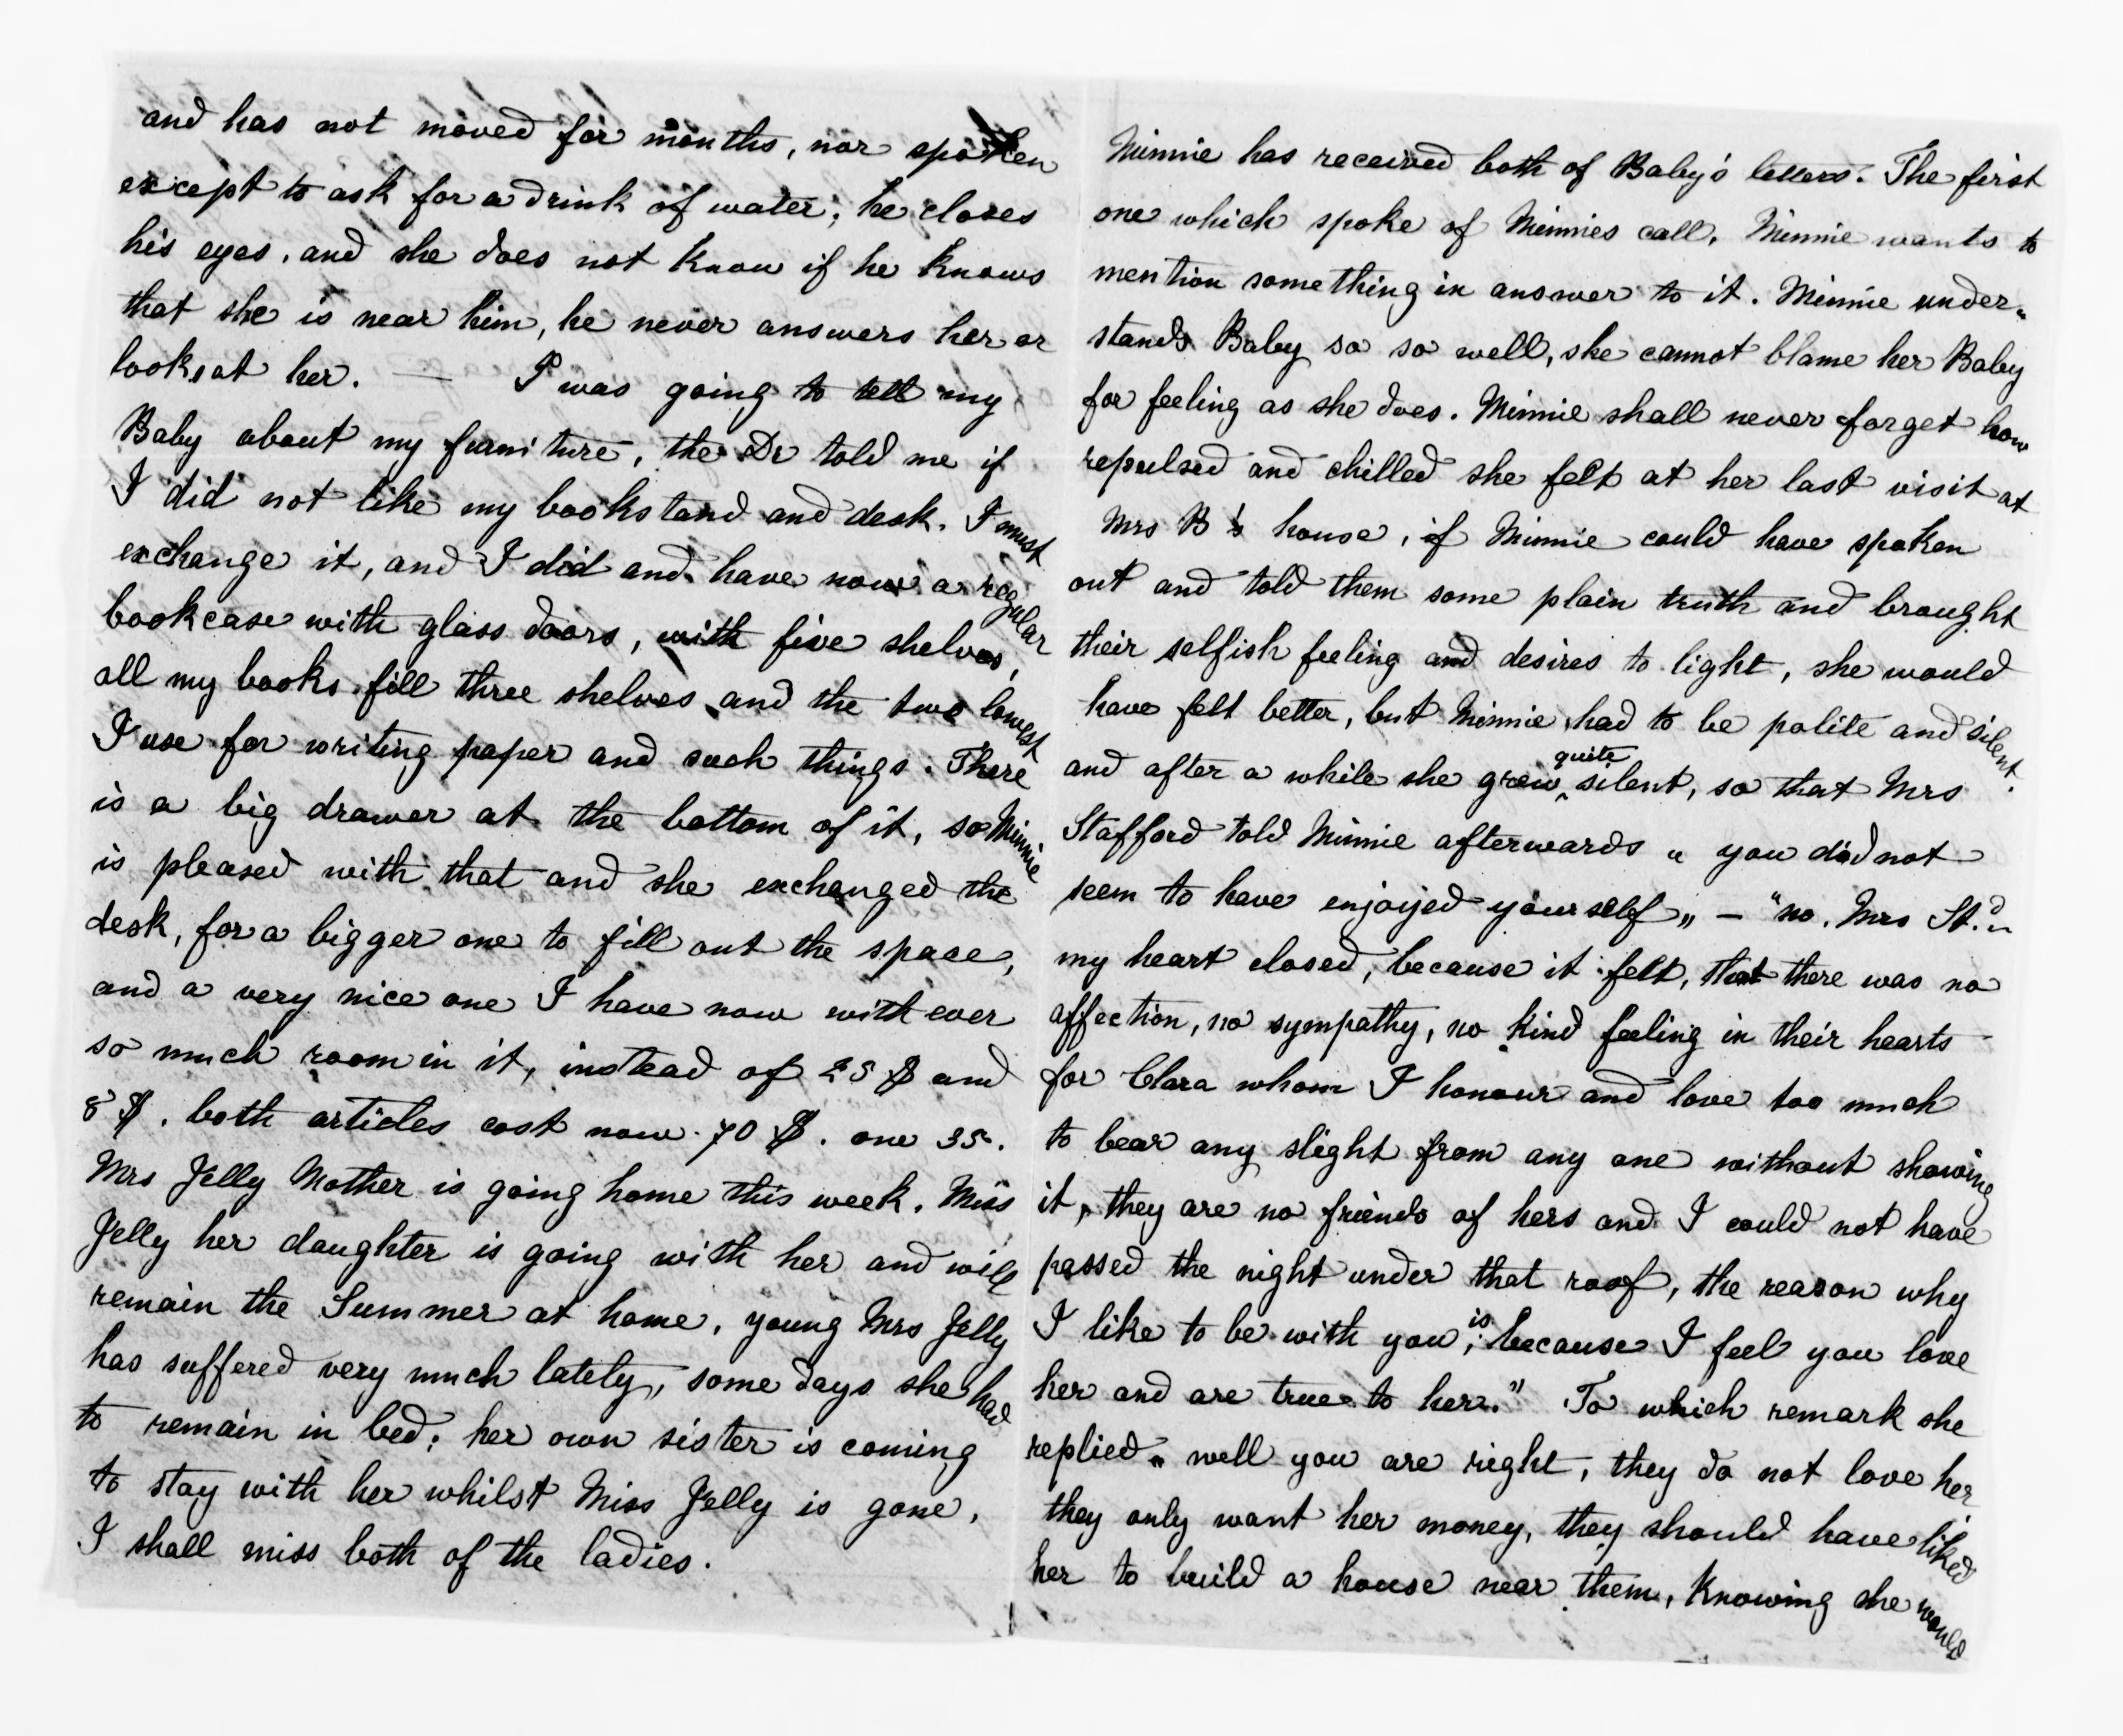 and has not moved for months, nor spoken
except to ask for a drink of water; he closes
his eyes, and she does not know if he knows
that she is near him, he never answers her or
looks at her. — I was going to tell my
Baby about my furniture, the Dr told me if
I did not like my bookstand and desk. I must
exchange it, and I did and have now a regular
bookcase with glass doors, with five shelves,
all my books fill three shelves and the two lowest
I use for writing paper and such things. There
is a big drawer at the bottom of it, so Minnie
is pleased with that and she exchanged the
desk, for a bigger one to fill out the space,
and a very nice one I have now with ever
so much room in it, instead of 25 $ and
8 $. both articles cost now 70 $. one 35.
Mrs Jelly Mother is going home this week. Miss
Jelly her daughter is going with her and will
remain the Summer at home, young Mrs Jelly
has suffered very much lately, some days she had
to remain in bed; her own sister is coming
to stay with her whilst Miss Jelly is gone,
I shall miss both of the ladies.
Minnie has received both of Baby's letters. The first
one which spoke of Minnies call, Minnie wants to
mention something in answer to it. Minnie under-
stands Baby so so well, she cannot blame her Baby
for feeling as she does. Minnie shall never forget how
repulsed and chilled she felt at her last visit at
Mrs B's house, if Minnie could have spoken
out and told them some plain truth and brought
their selfish feeling and desires to light, she would
have felt better, but Minnie had to be polite and silent.
and after a while she grew quite silent, so that Mrs
Stafford told Minnie afterwards „ you did not
seem to have enjoyed yourself „ — "no, Mrs St.d
my heart closed, because it felt, that there was no
affection, no sympathy, no kind feeling in their hearts
for Clara whom I honour and love too much
to bear any slight from any one without showing
it, they are no friends of hers and I could not have
passed the night under that roof, the reason why
I like to be with you, is because I feel you love
her and are true to her." To which remark she
replied „ well you are right, they do not love her
they only want her money, they should have liked
her to build a house near them, knowing she would